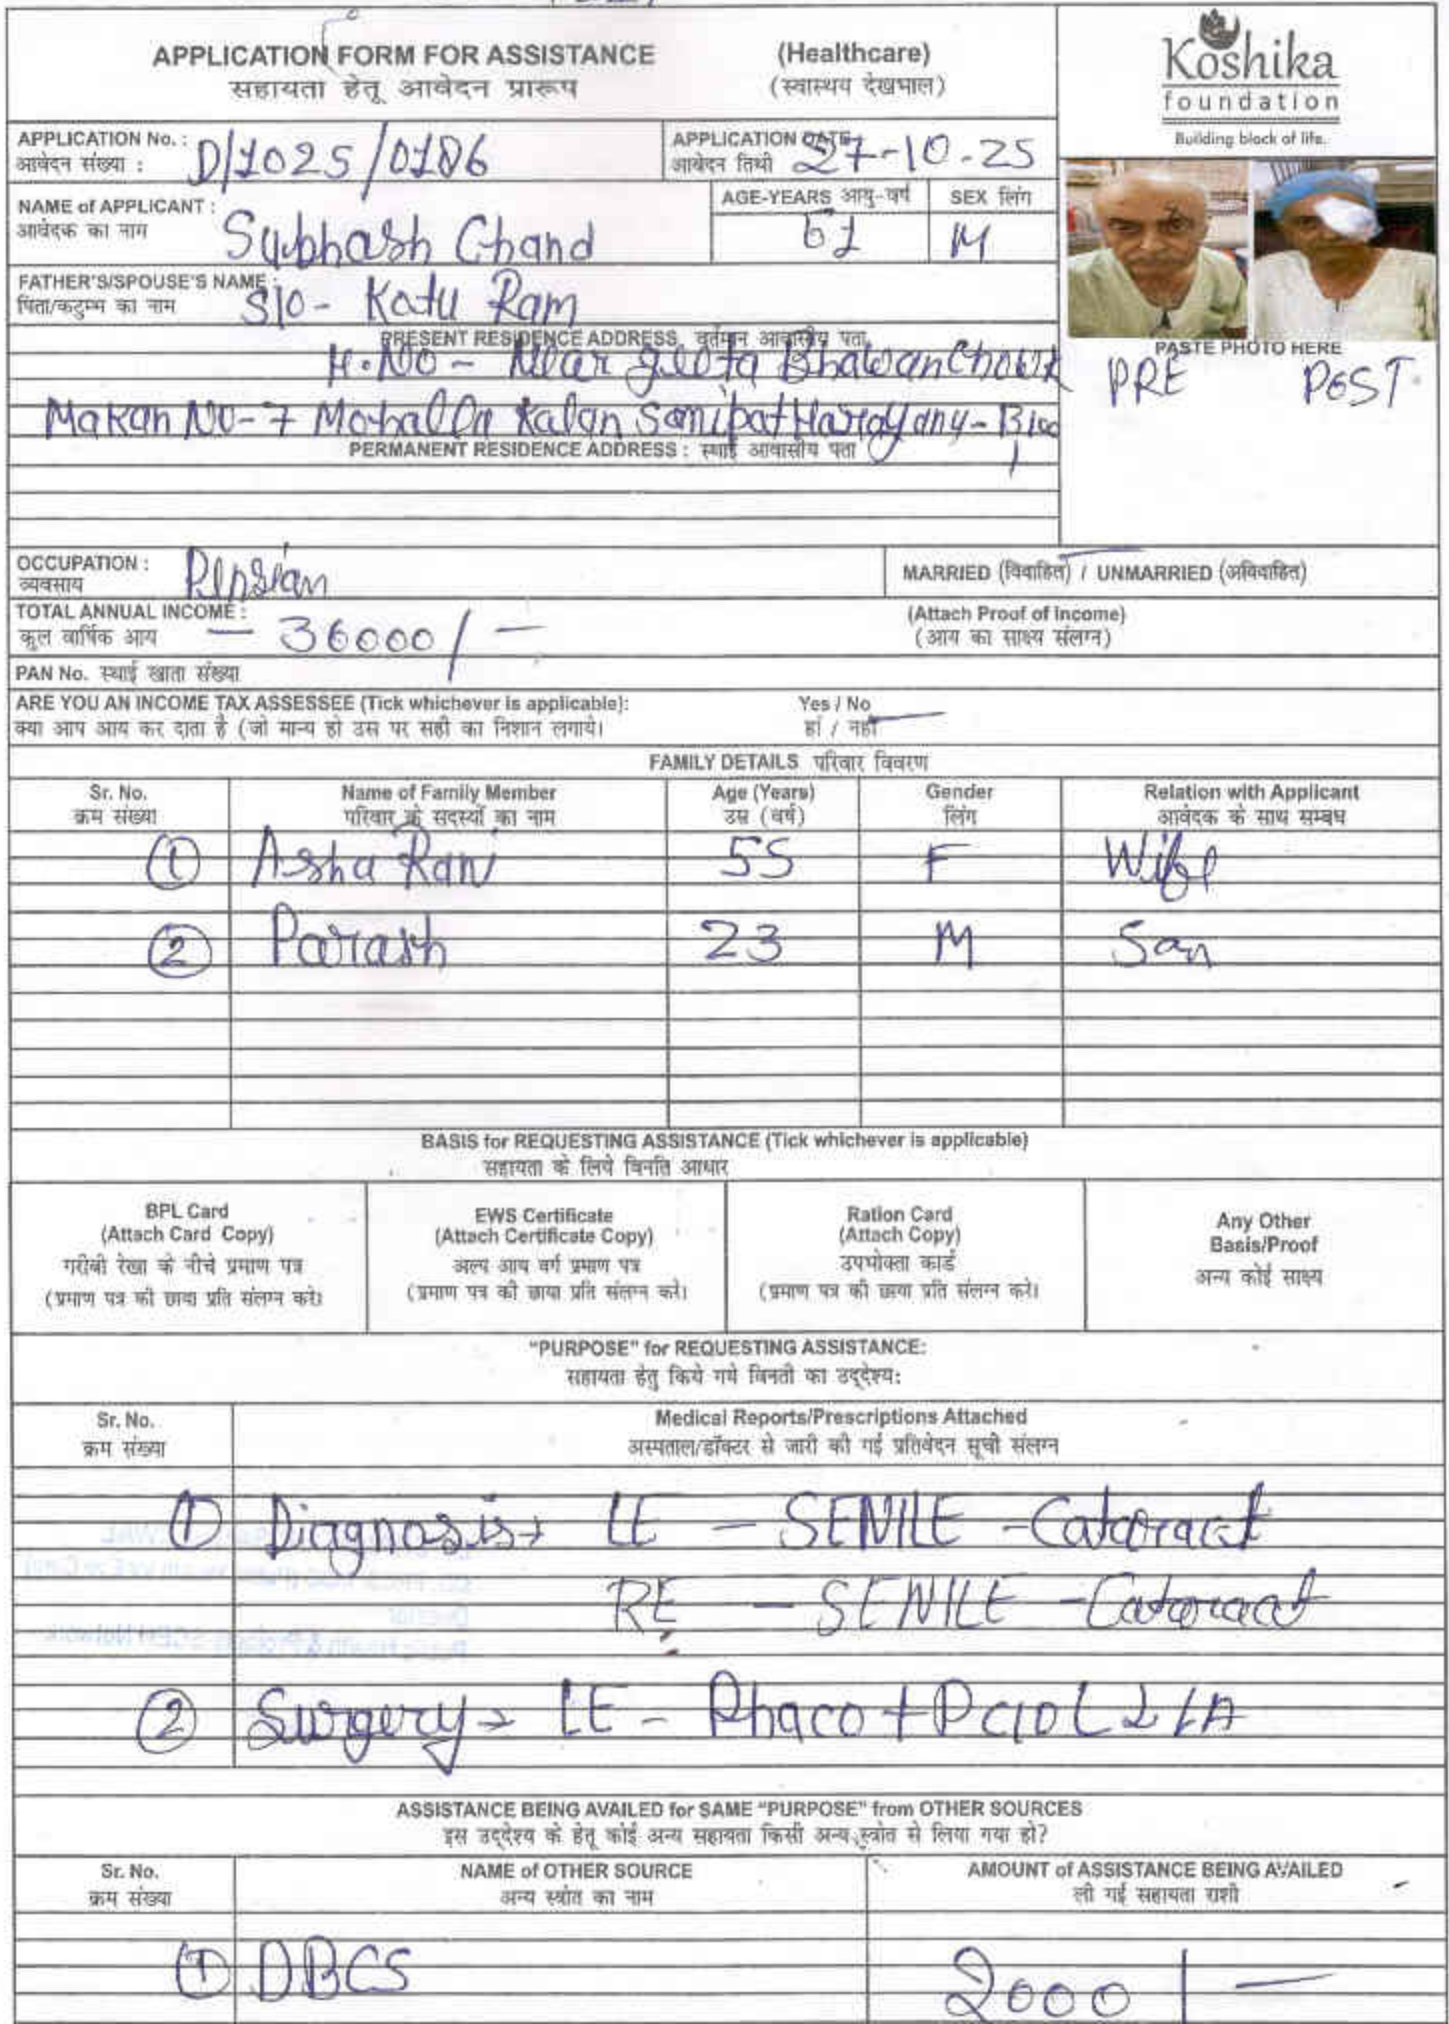 APPLICATION FORM FOR ASSISTANCE (Healthcare)
सहायता हेतू आवेदन प्रारूप (स्वास्थय देखभाल)
Koshika
foundation
Building block of life.
APPLICATION No. : D/1025/0186
आवेदन संख्या :
APPLICATION DATE 27-10-25
आवेदन तिथी
NAME of APPLICANT : Subhash Chand
आवेदक का नाम
AGE-YEARS आयु-वर्ष
SEX लिंग
M
FATHER'S/SPOUSE'S NAME : S/o - Kotu Ram
पिता/कटुम्भ का नाम
PRESENT RESIDENCE ADDRESS वर्तमान आवासीय पता
H.NO - Near geeta Bhawan Chowk
Makan NO-7 Mohalla Kalan Sonipat
PERMANENT RESIDENCE ADDRESS : स्थाई आवासीय पता
PASTE PHOTO HERE
PRE POST
OCCUPATION : Pension
व्यवसाय
MARRIED (विवाहित) / UNMARRIED (अविवाहित)
TOTAL ANNUAL INCOME : - 36000/-
कुल वार्षिक आय
(Attach Proof of Income)
(आय का साक्ष्य संलग्न)
PAN No. स्थाई खाता संख्या
ARE YOU AN INCOME TAX ASSESSEE (Tick whichever is applicable): Yes / No
क्या आप आय कर दाता है (जो मान्य हो उस पर सही का निशान लगाये। हां / नहीं
FAMILY DETAILS परिवार विवरण
Sr. No. Name of Family Member Age (Years) Gender Relation with Applicant
क्रम संख्या परिवार के सदस्यों का नाम उम्र (वर्ष) लिंग आवेदक के साथ सम्बध
1 Asha Rani 55 F Wife
2 Parash 23 M Son
BASIS for REQUESTING ASSISTANCE (Tick whichever is applicable)
सहायता के लिये विनति आधार
BPL Card
(Attach Card Copy)
गरीबी रेखा के नीचे प्रमाण पत्र
(प्रमाण पत्र की छाया प्रति संलग्न करे।
EWS Certificate
(Attach Certificate Copy)
अल्प आय वर्ग प्रमाण पत्र
(प्रमाण पत्र की छाया प्रति संलग्न करे।
Ration Card
(Attach Copy)
उपभोक्ता कार्ड
(प्रमाण पत्र की छाया प्रति संलग्न करे।
Any Other
Basis/Proof
अन्य कोई साक्ष्य
"PURPOSE" for REQUESTING ASSISTANCE:
सहायता हेतु किये गये विनती का उद्देश्य:
Sr. No. Medical Reports/Prescriptions Attached
क्रम संख्या अस्पताल/डॉक्टर से जारी की गई प्रतिवेदन सूची संलग्न
1 Diagnosis → LE - SENILE - Cataract
RE - SENILE - Cataract
2 Surgery → LE - Phaco + PCIOL
ASSISTANCE BEING AVAILED for SAME "PURPOSE" from OTHER SOURCES
इस उद्देश्य के हेतू कोई अन्य सहायता किसी अन्य स्त्रोत से लिया गया हो?
Sr. No. NAME of OTHER SOURCE AMOUNT of ASSISTANCE BEING AVAILED
क्रम संख्या अन्य स्त्रोत का नाम ली गई सहायता राशी
1 DBCS 2000/-